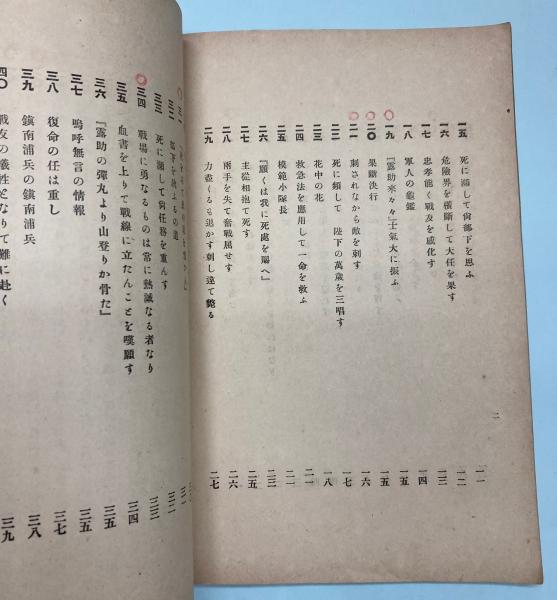 一五 死に瀕して尙部下を思ふ 一一
一六 危險界を橫斷して大任を果す 一二
一七 忠孝能く戰友を感化す 一三
一八 軍人の龜鑑 一四
一九 『露助來々々』士氣大に振ふ 一五
二〇 果斷決行 一五
二一 刺されながら敵を刺す 一六
二二 死に瀕して 陛下の萬歲を三唱す 一七
二三 花中の花 一八
二四 救急法を應用して一命を救ふ 二一
二五 模範小隊長 二一
二六 『願くは我に死處を賜へ』 二三
二七 主從相抱て死す 二五
二八 兩手を失て奮戰屈せず 二六
二九 力盡くるも退かす刺し違て斃る 二七
二
三一
三二 部下を救ふの道
三三 死に瀕して尙任務を重んす 三三
三四 戰場に勇なるものは常に熱誠なる者なり 三四
三五 血書を上りて戰線に立たんことを嘆願す 三五
三六 『露助の彈丸より山登りか骨た』 三五
三七 嗚呼無言の情報 三七
三八 復命の任は重し 三八
三九 鎭南浦兵の鎭南浦兵 三九
四〇 戰友の犧牲となりて難に赴く